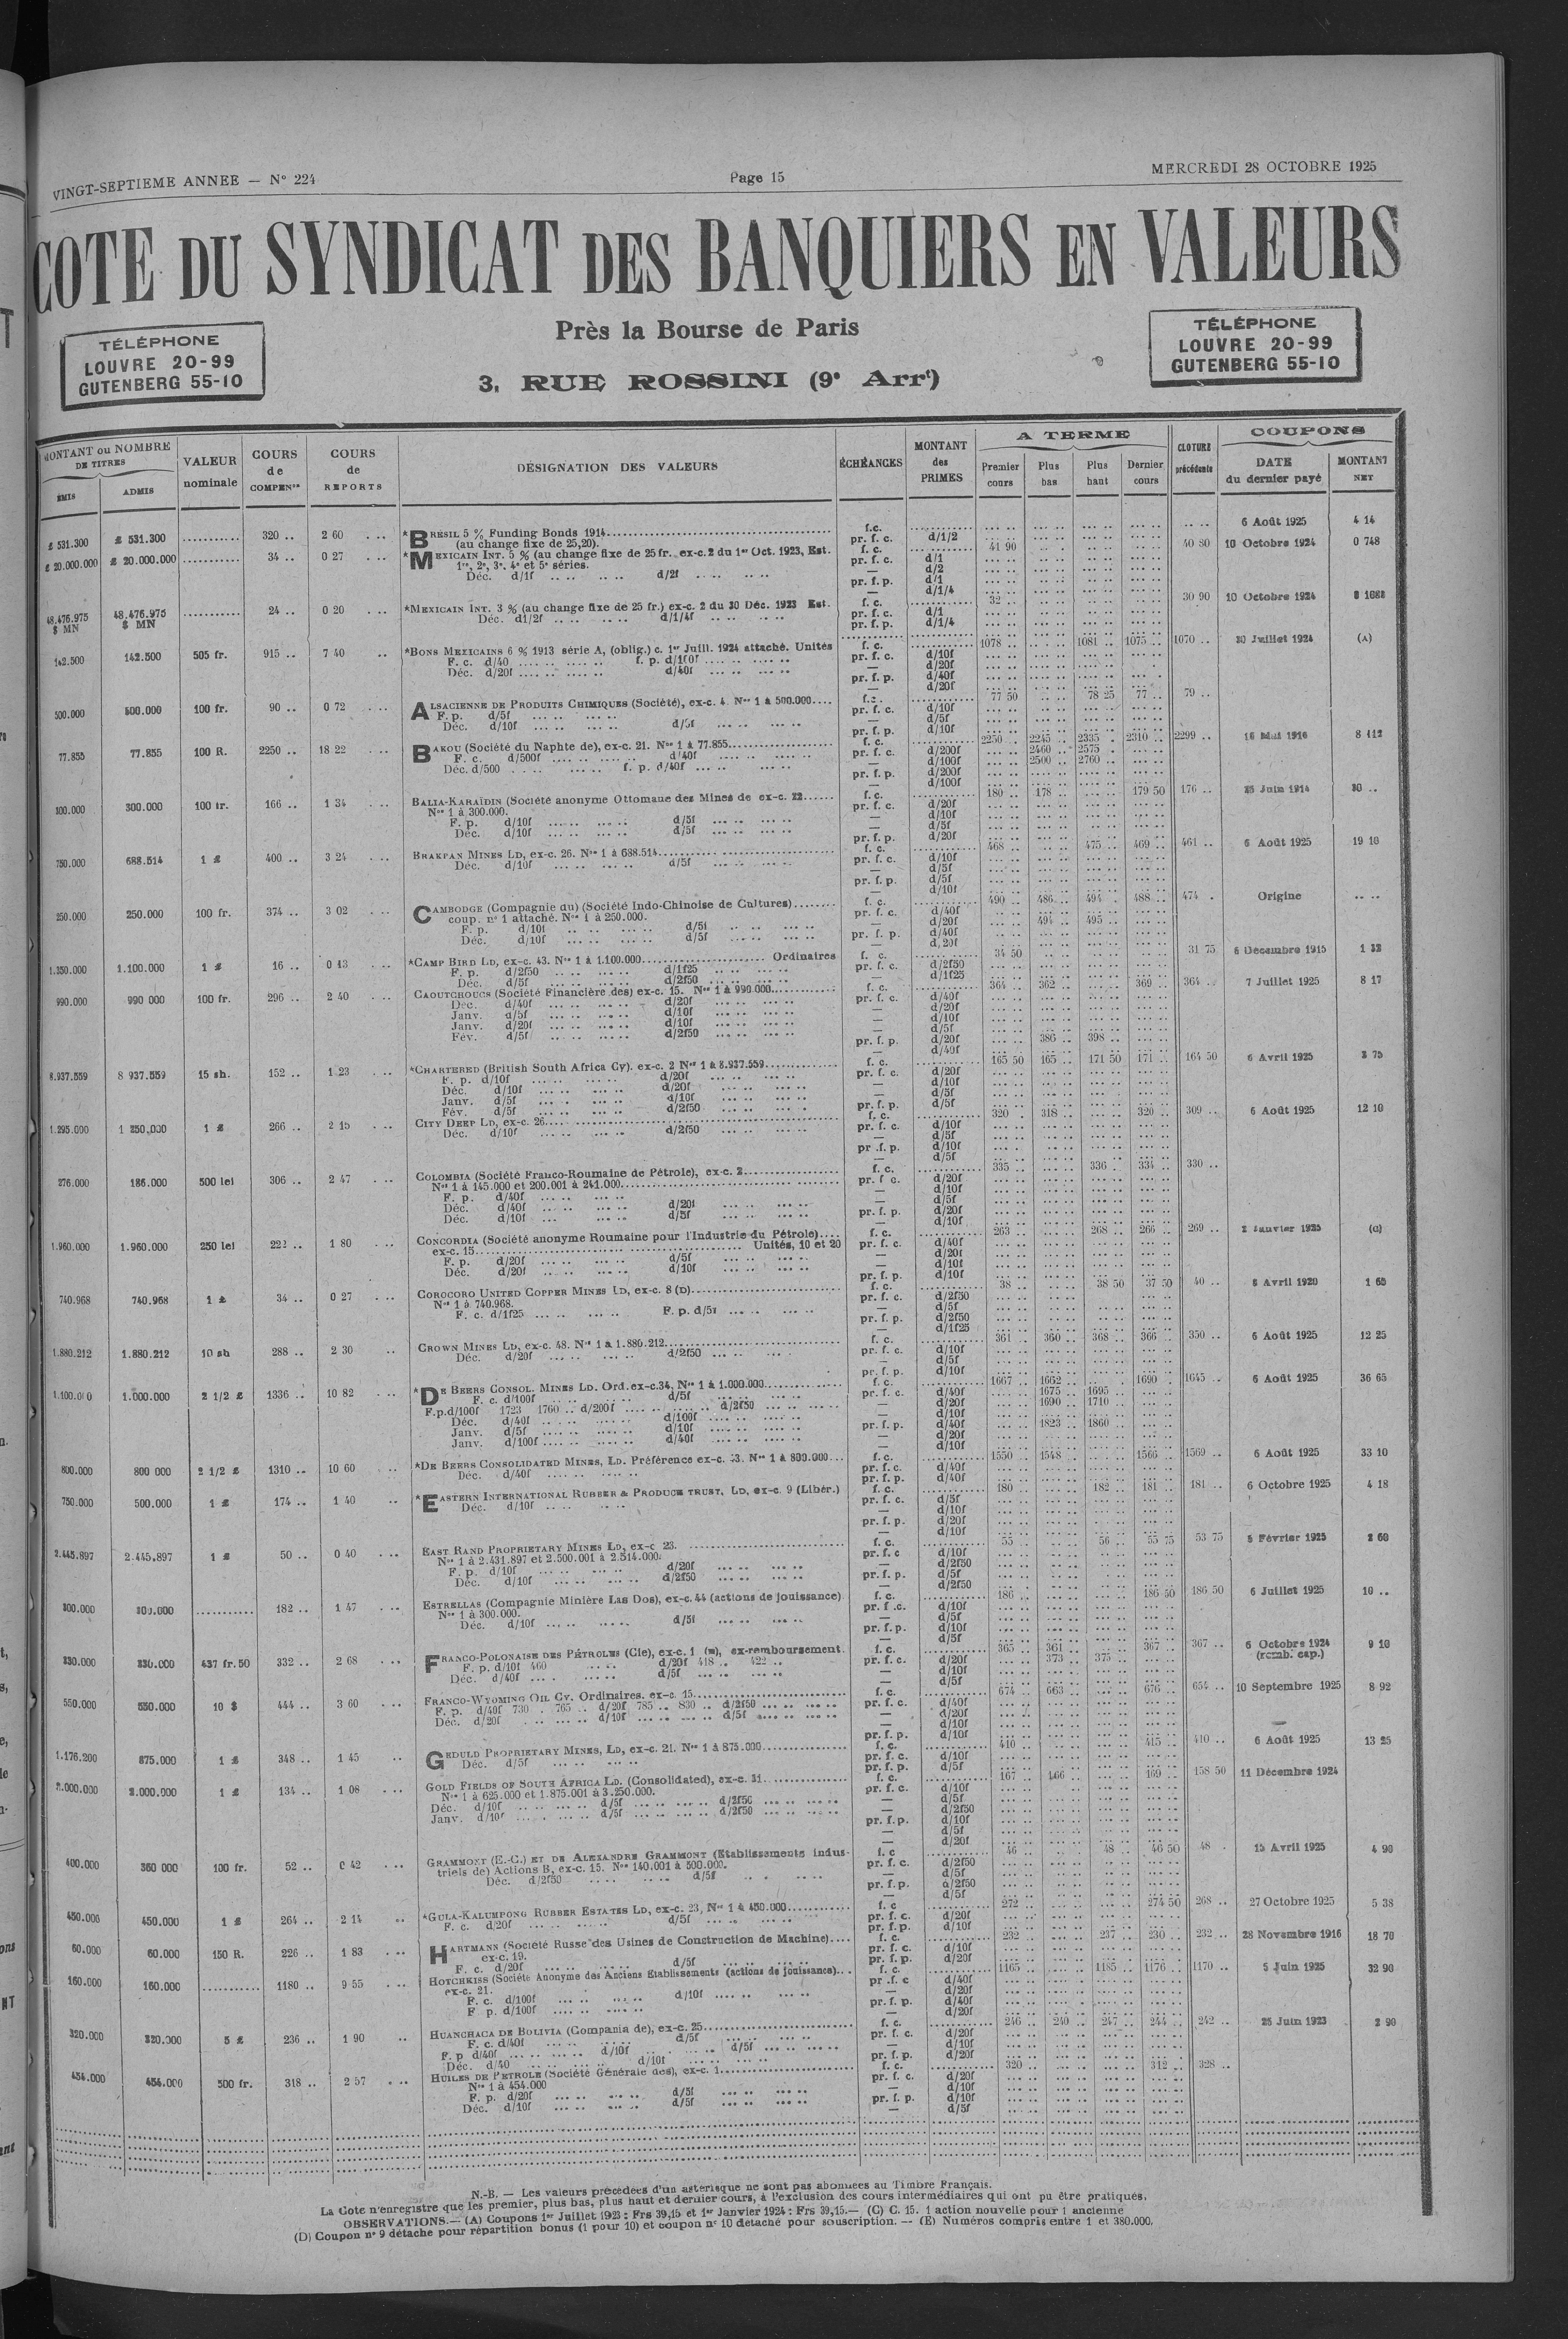 VINGT-SEPTIEME ANNEE — N° 224
Page 15
MERCREDI 28 OCTOBRE 1925
COTE DU SYNDICAT DES BANQUIERS EN VALEURS
Près la Bourse de Paris
3, RUE ROSSINI (9e Arrt)
TÉLÉPHONE
LOUVRE 20-99
GUTENBERG 55-10
TÉLÉPHONE
LOUVRE 20-99
GUTENBERG 55-10
MONTANT ou NOMBRE DE TITRES
ÉMIS ADMIS
VALEUR nominale
COURS de COMPENon
COURS de REPORTS
DÉSIGNATION DES VALEURS
ÉCHÉANCES
MONTANT des PRIMES
A TERME
Premier cours Plus bas Plus haut Dernier cours
CLOTURE précédente
COUPONS
DATE du dernier payé MONTANT NET
£ 531.300 £ 531.300 ........... 320 .. 2 60 *BRÉSIL 5 % Funding Bonds 1914 f.c. 6 Août 1925 4 14
(au change fixe de 25,20). pr. f. c. d/1/2
£ 20.000.000 £ 20.000.000 ........... 34 .. 0 27 *MEXICAIN INT. 5 % (au change fixe de 25 fr. ex-c. 2 du 1er Oct. 1923, Est. f. c. 41 90 40 80 10 Octobre 1924 0 748
1re, 2e, 3e, 4e et 5e séries. pr. f. c. d/1
Déc. d/1f d/2f — d/2
pr. f. p. d/1
— d/1/4
48.476.975 $ MN 48.476.975 $ MN ........... 24 .. 0 20 *MEXICAIN INT. 3 % (au change fixe de 25 fr.) ex-c. 2 du 30 Déc. 1923 Est. f. c. 32 .. 30 90 10 Octobre 1924
Déc. d1/2f d/1/4f pr. f. c. d/1
pr. f. p. d/1/4
142.500 142.500 505 fr. 915 .. 7 40 *BONS MEXICAINS 6 % 1913 série A, (oblig.) c. 1er Juill. 1924 attaché. Unités f. c. 1078 .. 1081 .. 1075 .. 1070 .. 30 Juillet 1924 (A)
F. c. d/40 f. p. d/100f pr. f. c. d/10f
Déc. d/20f d/40f — d/20f
pr. f. p. d/40f
— d/20f
500.000 500.000 100 fr. 90 .. 0 72 ALSACIENNE DE PRODUITS CHIMIQUES (Société), ex-c. 4. Nos 1 à 500.000.... f.c. 77 50 78 25 77 .. 79 ..
F. p. d/5f pr. f. c. d/10f
Déc. d/10f d/5f — d/5f
pr. f. p. d/10f
77.855 77.855 100 R. 2250 .. 18 22 BAKOU (Société du Naphte de), ex-c. 21. Nos 1 à 77.855 f. c. 2250 .. 2245 .. 2335 .. 2310 .. 2299 .. 16 Mai 1916 8 112
F. c. d/500f d/40f pr. f. c. d/200f 2460 .. 2575 ..
Déc. d/500 f. p. d/40f — d/100f 2500 .. 2760 ..
pr. f. p. d/200f
— d/100f
300.000 300.000 100 fr. 166 .. 1 34 BALIA-KARAÏDIN (Société anonyme Ottomane des Mines de ex-c. 22...... f. c. 180 .. 178 .. 179 50 176 .. 25 Juin 1914 30 ..
Nos 1 à 300.000. pr. f. c. d/20f
F. p. d/10f d/5f — d/10f
Déc. d/10f d/5f — d/5f
pr. f. p. d/20f
750.000 688.514 1 £ 400 .. 3 24 BRAKPAN MINES LD, ex-c. 26. Nos 1 à 688.514 f. c. 468 .. 475 .. 469 .. 461 .. 6 Août 1925 19 10
Déc. d/10f d/5f pr. f. c. d/10f
— d/5f
pr. f. p. d/5f
— d/10f
250.000 250.000 100 fr. 374 .. 3 02 CAMBODGE (Compagnie du) (Société Indo-Chinoise de Cultures)........ f. c. 490 .. 486 .. 494 . 488 .. 474 . Origine
coup. n° 1 attaché. Nos 1 à 250.000. pr. f. c. d/40f
F. p. d/10f d/5f — d/20f 494 .. 495 ..
Déc. d/10f d/5f pr. f. p. d/40f
— d/20f
1.350.000 1.100.000 1 £ 16 .. 0 13 *CAMP BIRD LD, ex-c. 43. Nos 1 à 1.100.000 Ordinaires f. c. 34 50 31 75 6 Décembre 1915
F. p. d/2f50 d/1f25 pr. f. c. d/2f50
Déc. d/5f d/2f50 — d/1f25
990.000 990 000 100 fr. 296 .. 2 40 CAOUTCHOUCS (Société Financière des) ex-c. 15. Nos 1 à 990.000 f. c. 364 .. 362 .. 369 .. 364 .. 7 Juillet 1925 8 17
Déc. d/40f d/20f pr. f. c. d/40f
Janv. d/5f d/10f — d/20f
Janv. d/20f d/10f — d/10f
Fév. d/5f d/2f50 — d/5f
pr. f. p. d/20f 386 .. 398 ..
— d/40f
8.937.559 8 937.559 15 sh. 152 .. 1 23 *CHARTERED (British South Africa Cy). ex-c. 2 Nos 1 à 8.937.559 f. c. 165 50 165 .. 171 50 171 .. 164 50 6 Avril 1925 2 75
F. p. d/10f d/20f pr. f. c. d/20f
Déc. d/10f d/20f — d/10f
Janv. d/5f d/10f — d/5f
Fév. d/5f d/2f50 pr. f. p. d/5f
1.295.000 1 250.000 1 £ 266 .. 2 15 CITY DEEP LD, ex-c. 26 f. c. 320 . 318 .. 320 .. 309 .. 6 Août 1925 12 10
Déc. d/10f d/2f50 pr. f. c. d/10f
— d/5f
pr .f. p. d/10f
— d/5f
276.000 186.000 500 lei 306 .. 2 47 COLOMBIA (Société Franco-Roumaine de Pétrole), ex-c. 2 f. c. 335 .. 336 .. 334 .. 330 ..
Nos 1 à 145.000 et 200.001 à 241.000 pr. f c. d/20f
F. p. d/40f — d/10f
Déc. d/40f d/20f — d/5f
Déc. d/10f d/5f pr. f. p. d/20f
— d/10f
1.960.000 1.960.000 250 lei 222 .. 1 80 CONCORDIA (Société anonyme Roumaine pour l'Industrie du Pétrole).... f. c. 263 .. 268 .. 266 .. 269 .. 2 Janvier 1925 (C)
ex-c. 15 Unités, 10 et 20 pr. f. c. d/40f
F. p. d/20f d/5f — d/20f
Déc. d/20f d/10f — d/10f
pr. f. p. d/10f
740.968 740.968 1 £ 34 .. 0 27 COROCORO UNITED COPPER MINES LD, ex-c. 8 (D) f. c. 38 .. 38 50 37 50 40 .. 8 Avril 1920 1 65
Nos 1 à 740.968. pr. f. c. d/2f50
F. c. d/1f25 F. p. d/5f — d/5f
pr. f. p. d/2f50
— d/1f25
1.880.212 1.880.212 10 sh 288 .. 2 30 CROWN MINES LD, ex-c. 48. Nos 1 à 1.880.212 f. c. 361 .. 360 .. 368 .. 366 .. 350 .. 6 Août 1925 12 25
Déc. d/20f d/2f50 pr. f. c. d/10f
— d/5f
pr. f. p. d/10f
1.100.000 1.000.000 2 1/2 £ 1336 .. 10 82 *DE BEERS CONSOL. MINES LD. Ord. ex-c.34, Nos 1 à 1.000.000 f. c. 1667 .. 1662 .. 1690 .. 1645 .. 6 Août 1925 36 65
F. c. d/100f d/5f pr. f. c. d/40f 1675 .. 1695 ..
F.p.d/100f 1723 1760 .. d/200f d/2f50 — d/20f 1690 .. 1710 ..
Déc. d/40f d/100f — d/10f
Janv. d/5f d/10f pr. f. p. d/40f 1823 .. 1860 ..
Janv. d/100f d/40f — d/20f
— d/10f
800.000 800 000 2 1/2 £ 1310 .. 10 60 *DE BEERS CONSOLIDATED MINES, LD. Préférence ex-c. 33. Nos 1 à 800.000... f. c. 1550 .. 1548 .. 1566 .. 1569 .. 6 Août 1925 33 10
Déc. d/40f pr. f. c. d/40f
pr. f. p. d/40f
750.000 500.000 1 £ 174 .. 1 40 *EASTERN INTERNATIONAL RUBBER & PRODUCE TRUST, LD, ex-c. 9 (Libér.) f. c. 180 .. 182 .. 181 .. 181 .. 6 Octobre 1925 4 18
Déc. d/10f pr. f. c. d/5f
— d/10f
pr. f. p. d/20f
— d/10f
2.445.897 2.445.897 1 £ 50 .. 0 40 EAST RAND PROPRIETARY MINES LD, ex-c 23. f. c. 55 .. 56 .. 55 75 53 75 5 Février 1925 2 60
Nos 1 à 2.431.897 et 2.500.001 à 2.514.000. pr. f. c d/10f
F. p. d/10f d/20f — d/2f50
Déc. d/10f d/2f50 pr. f. p. d/5f
— d/2f50
300.000 300.000 ........... 182 .. 1 47 ESTRELLAS (Compagnie Minière Las Dos), ex-c. 44 (actions de jouissance) f. c. 186 .. 186 50 186 50 6 Juillet 1925 10 ..
Nos 1 à 300.000. pr. f .c. d/10f
Déc. d/10f d/5f — d/5f
pr. f. p. d/10f
— d/5f
330.000 330.000 437 fr.50 332 .. 2 68 FRANCO-POLONAISE DES PÉTROLES (Cie), ex-c. 1 (E), ex-remboursement. f. c. 365 .. 361 .. 367 .. 367 .. 6 Octobre 1924 9 10
F. p. d/10f 460 d/20f 418 .. 422 .. pr. f. c. d/20f 373 .. 375 .. (remb. cap.)
Déc. d/40f d/5f — d/10f
— d/5f
550.000 550.000 10 $ 444 .. 3 60 FRANCO-WYOMING OIL CY. Ordinaires. ex-c. 15 f. c. 674 .. 663 .. 676 .. 654 .. 10 Septembre 1925 8 92
F. p. d/40f 730 . 765 .. d/20f 785 .. 830 .. d/2f50 pr. f. c. d/40f
Déc. d/20f d/10f d/5f — d/20f
— d/10f
pr. f. p. d/10f
1.176.200 875.000 1 £ 348 .. 1 45 GEDULD PROPRIETARY MINES, LD, ex-c. 21. Nos 1 à 875.000 f. c. 410 .. 415 .. 410 .. 6 Août 1925 13 25
Déc. d/5f pr. f. c. d/10f
pr. f. p. d/5f
2.000.000 2.000.000 1 £ 134 .. 1 08 GOLD FIELDS OF SOUTH AFRICA LD. (Consolidated), ex-c. 31 f. c. 167 .. 166 .. 169 .. 158 50 11 Décembre 1924
Nos 1 à 625.000 et 1.875.001 à 3.250.000. pr. f. c. d/10f
Déc. d/10f d/5f d/2f50 — d/5f
Janv. d/10f d/5f d/2f50 — d/2f50
pr. f.p. d/10f
— d/5f
— d/20f
400.000 360 000 100 fr. 52 .. 0 42 GRAMMONT (E.-C.) ET DE ALEXANDRE GRAMMONT (Etablissements indus- f. c 46 .. 48 .. 46 50 48 . 15 Avril 1925 4 90
triels de) Actions B, ex-c. 15. Nos 140.001 à 500.000. pr. f. c. d/2f50
Déc. d/2f50 d/5f — d/5f
pr. f.p. d/2f50
— d/5f
450.000 450.000 1 £ 264 .. 2 14 *GULA-KALUMPONG RUBBER ESTATES LD, ex-c. 23, Nos 1 à 450.000 f. c 272 .. 274 50 268 .. 27 Octobre 1925 5 38
F. c. d/20f d/5f pr. f. c. d/20f
pr. f.p. d/10f
60.000 60.000 150 R. 226 .. 1 83 HARTMANN (Société Russe des Usines de Construction de Machine).... f. c. 232 .. 237 .. 230 .. 232 .. 28 Novembre 1916 18 70
ex-c. 19. pr. f. c. d/10f
F. c. d/20f d/5f pr. f. p. d/20f
160.000 160.000 ........... 1180 .. 9 55 HOTCHKISS (Société Anonyme des Anciens Etablissements (actions de jouissance)... f. c. 1165 .. 1185 .. 1176 .. 1170 .. 5 Juin 1925 32 90
ex-c. 21. pr .f. c d/40f
F. c. d/100f d/10f — d/20f
F p. d/100f pr. f. p. d/40f
— d/20f
320.000 320.000 5 £ 236 .. 1 90 HUANCHACA DE BOLIVIA (Compania de), ex-c. 25 f. c. 246 .. 240 .. 247 .. 244 .. 242 .. 25 Juin 1923 2 90
F. c. d/40f d/5f pr. f. c. d/20f
F. p d/40f d/10f d/5f — d/10f
Déc. d/40 d/10f pr. f. p. d/20f
454.000 454.000 500 fr. 318 .. 2 57 HUILES DE PETROLE (Société Générale des), ex-c. 1 f. c. 320 .. 312 .. 328 ..
Nos 1 à 454.000 pr. f. c. d/20f
F. p. d/20f d/5f — d/10f
Déc. d/10f d/5f pr. f. p. d/10f
— d/5f
N.-B. — Les valeurs précédées d'un astérisque ne sont pas abonnées au Timbre Français.
La Cote n'enregistre que les premier, plus bas, plus haut et dernier cours, à l'exclusion des cours intermédiaires qui ont pu être pratiqués.
OBSERVATIONS.— (A) Coupons 1er Juillet 1923 : Frs 39,15 et 1er Janvier 1924 : Frs 39,15.—. (C) C. 15. 1 action nouvelle pour 1 ancienne
(D) Coupon n° 9 détaché pour répartition bonus (1 pour 10) et coupon n° 10 détaché pour souscription. — (E) Numéros compris entre 1 et 380.000.